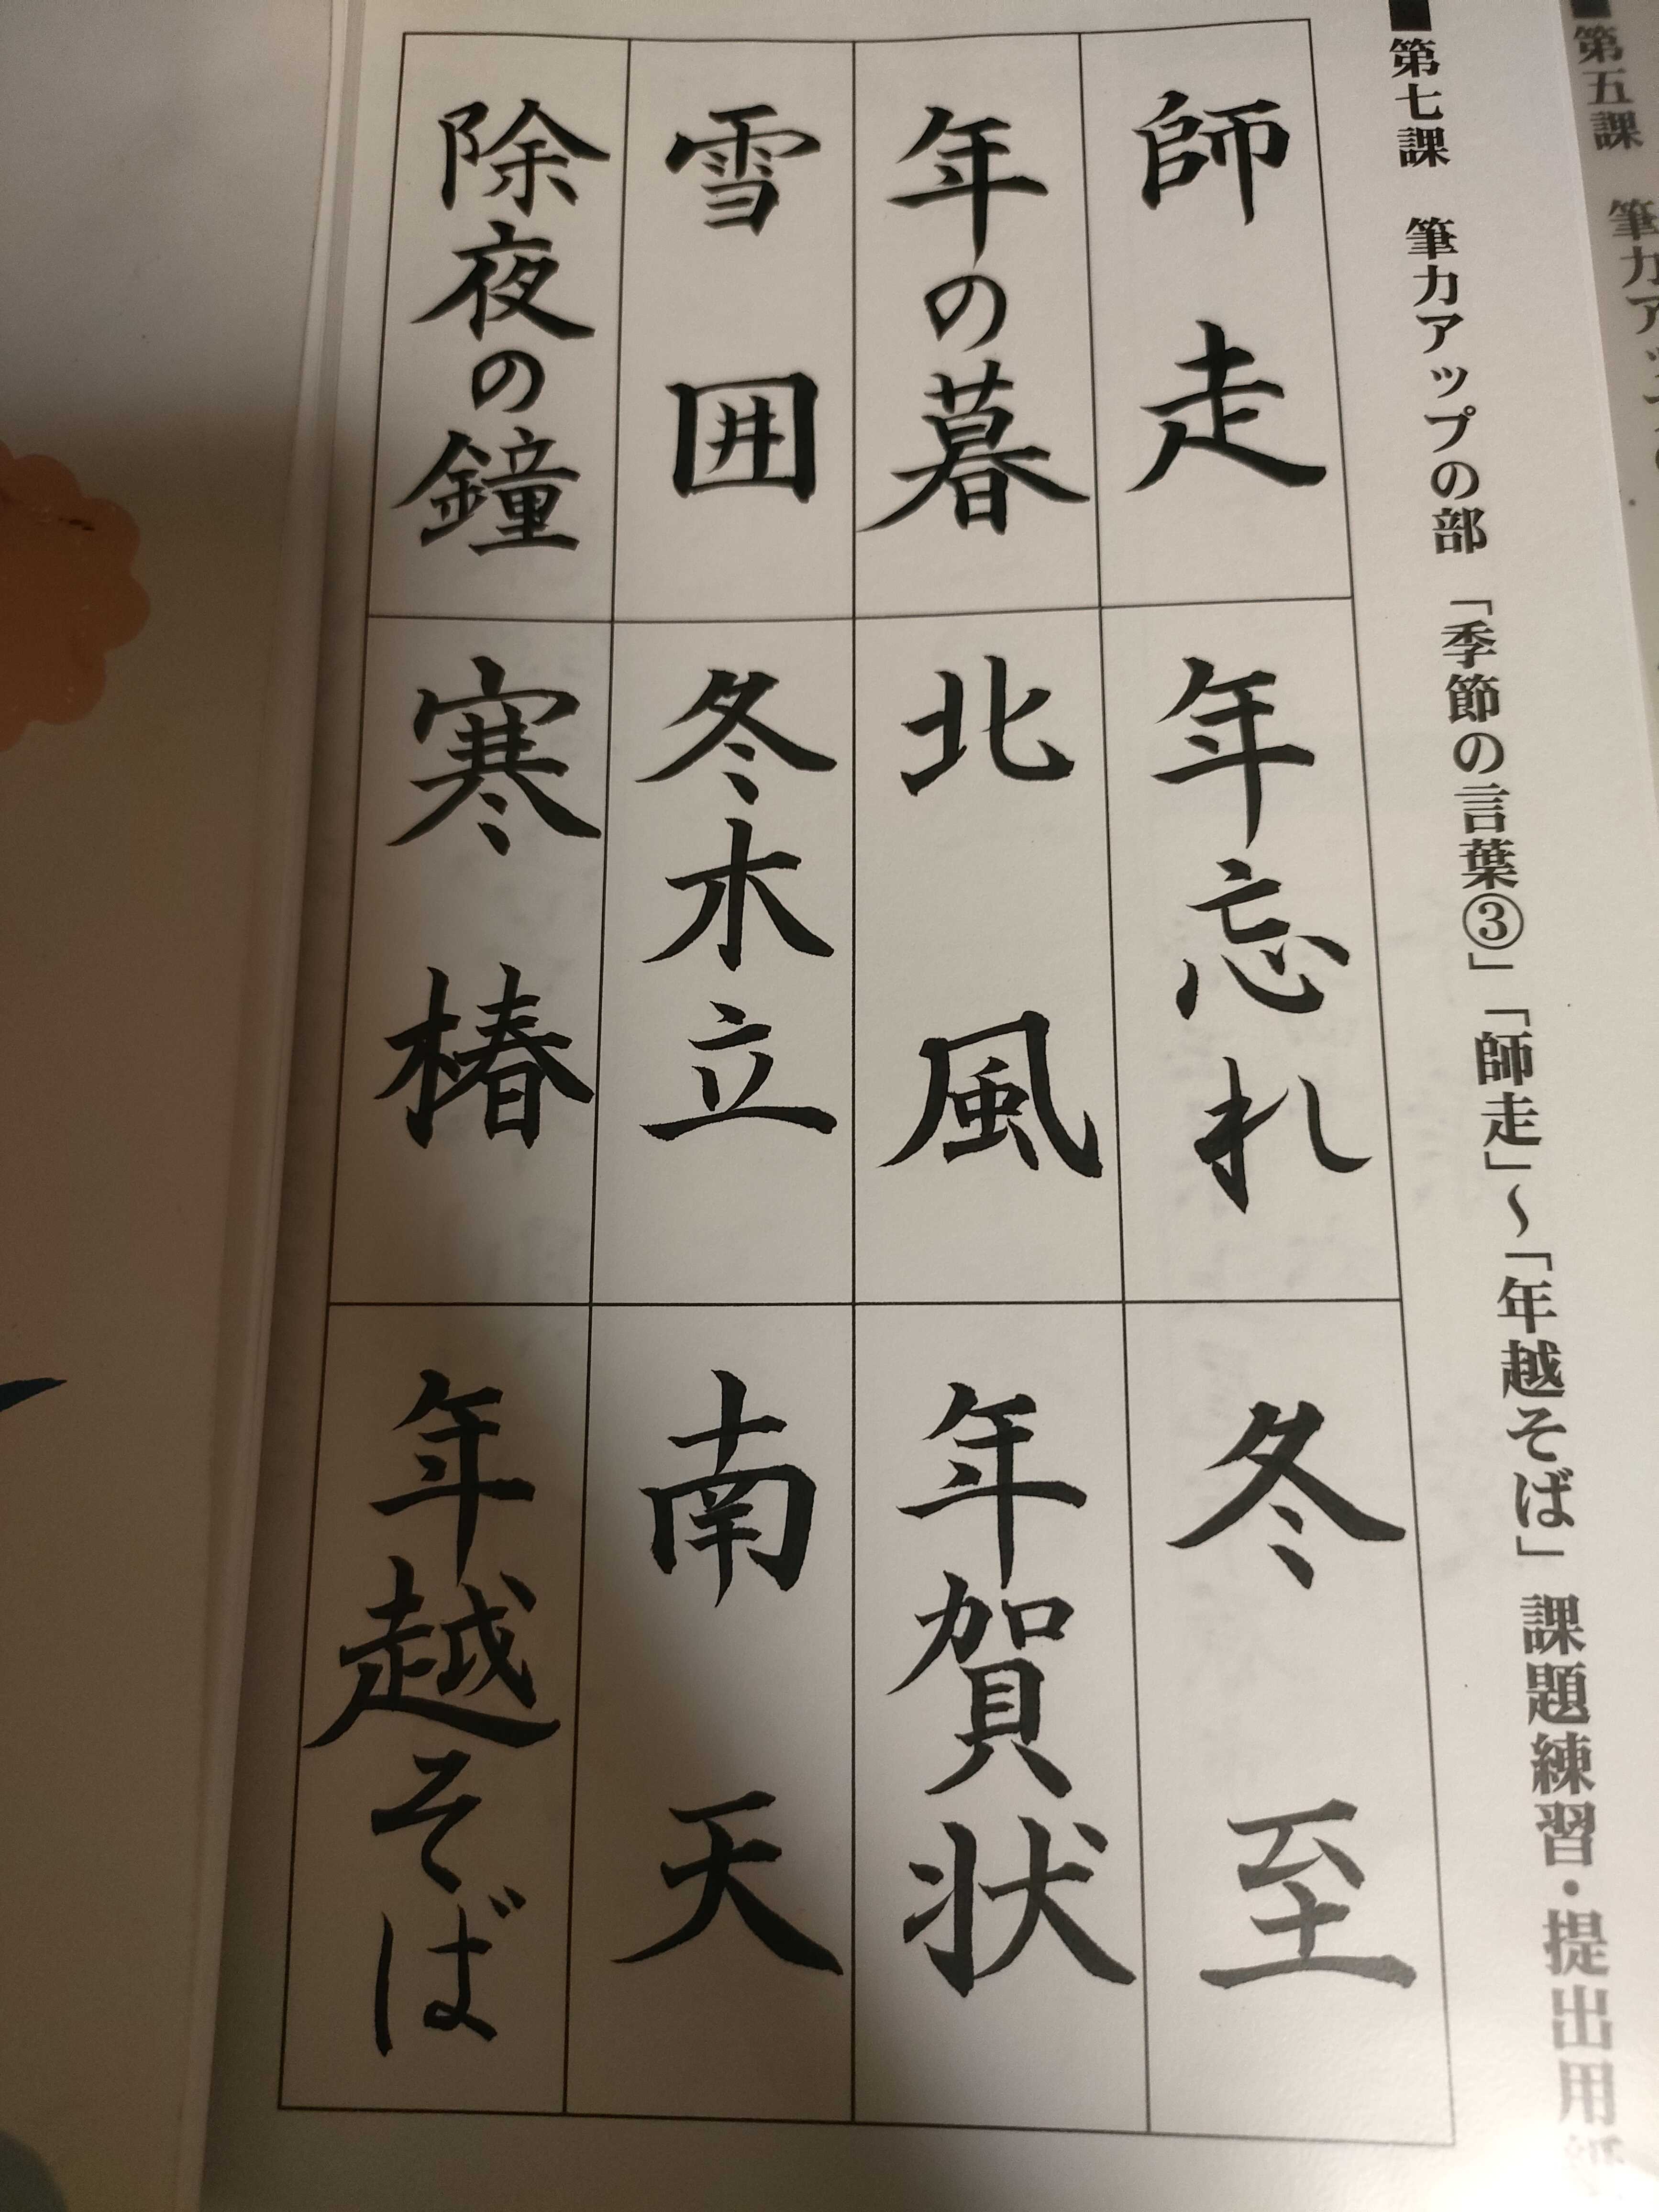 ■第七課 筆力アップの部 「季節の言葉③」「師走」〜「年越そば」課題練習・提出用紙
師走
年忘れ
冬至
年の暮
北風
年賀状
雪囲
冬木立
南天
除夜の鐘
寒椿
年越そば
■第五課 筆力アッ